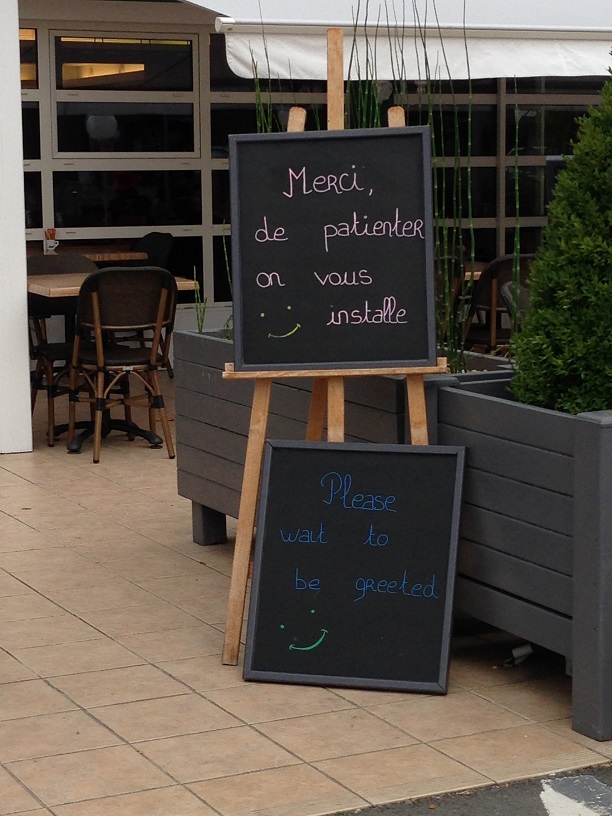 Merci,
de patienter
on vous
installe
Please
wait to
be greeted